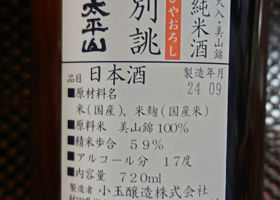 火入・美山錦
純米酒
ひやおろし
別誂
太平山
品目 日本酒
製造年月
24 09
■原材料名
米(国産)、米麹(国産米)
■原料米 美山錦100%
■精米歩合 59%
■アルコール分 17度
■内容量 720ml
製造者 小玉醸造株式会社